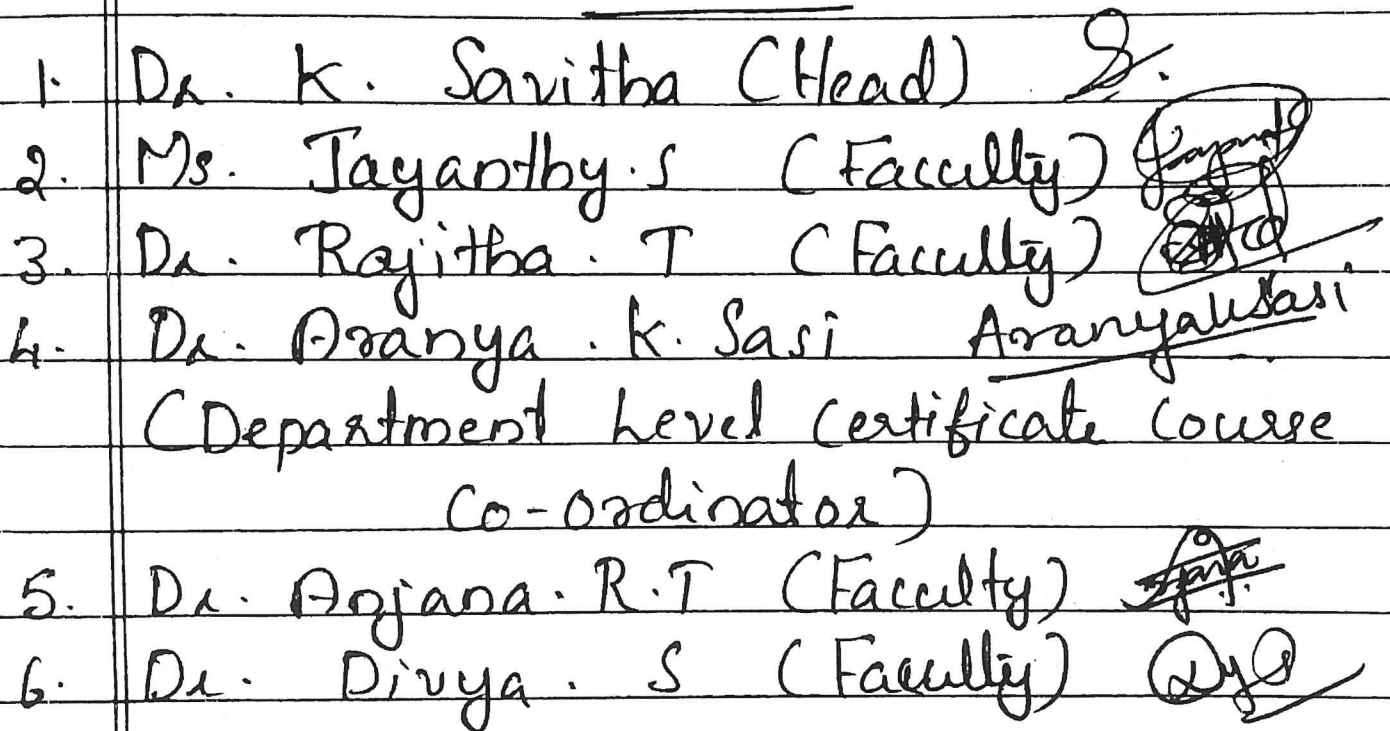 1. Dr. K. Savitha (Head) S.
2. Ms. Jayanthy.S (Faculty)
3. Dr. Rajitha. T (Faculty)
4. Dr. Aranya. K. Sasi Aranyaksasi
(Department Level Certificate Course
Co-ordinator)
5. Dr. Anjana. R.T (Faculty)
6. Dr. Divya. S (Faculty)